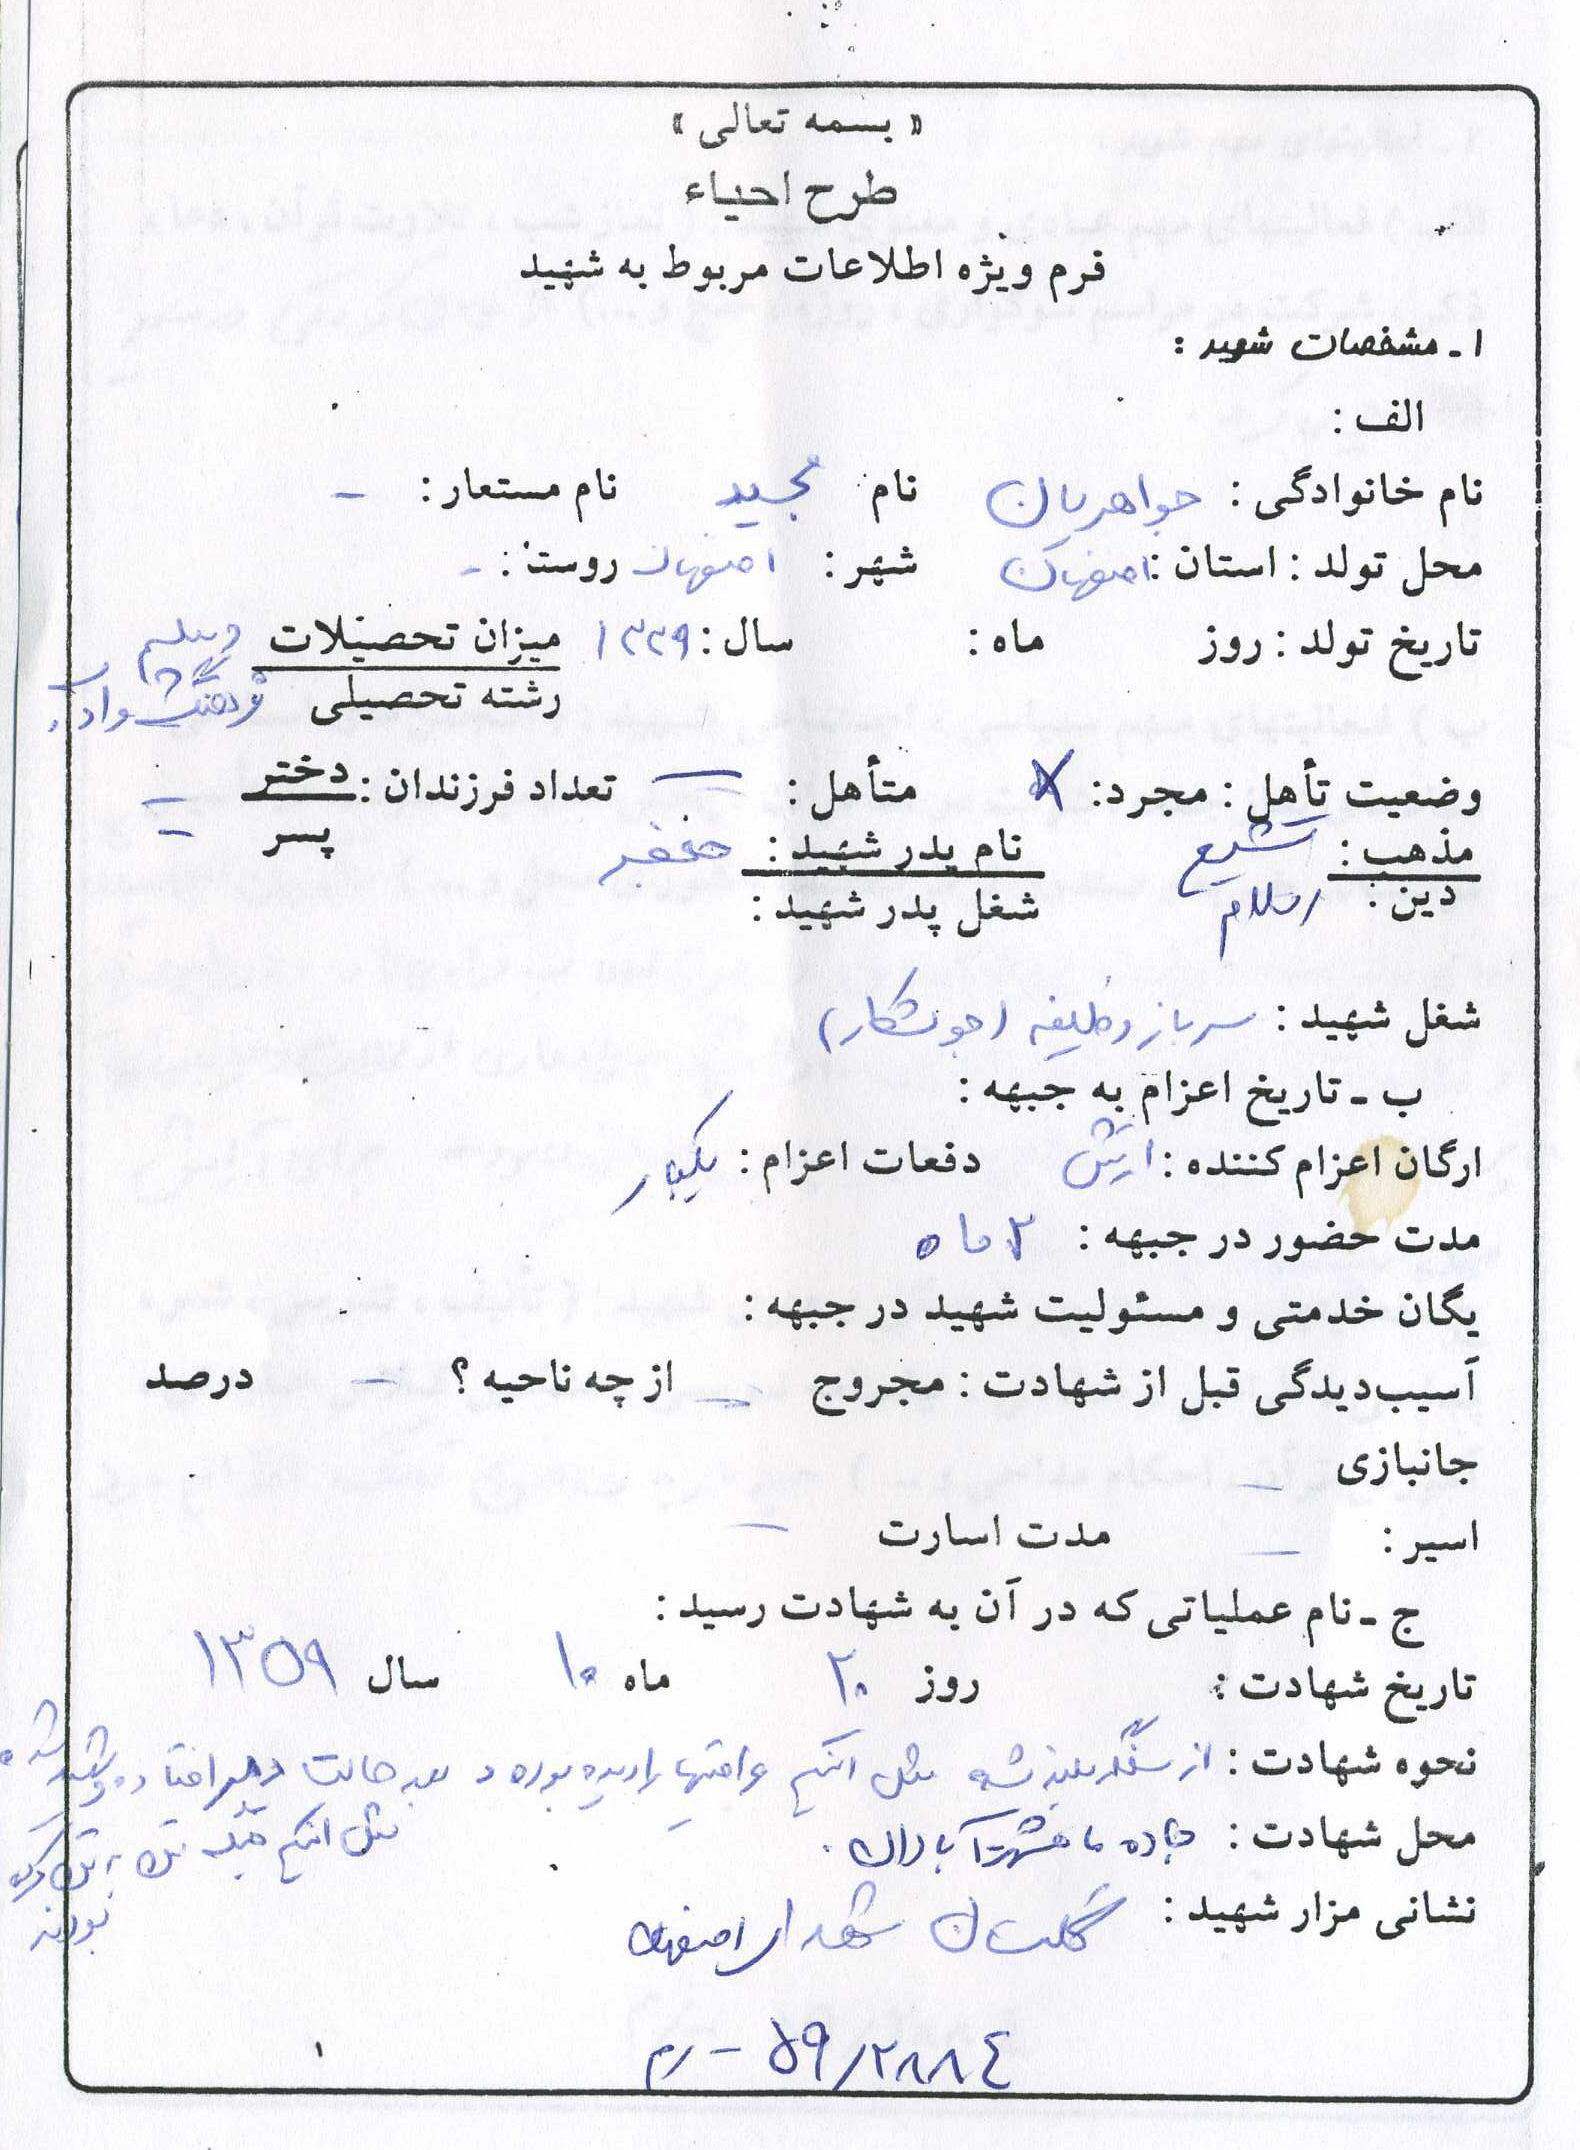 « بسمه تعالی »
طرح احیاء
فرم ویژه اطلاعات مربوط به شهید
۱ - مشخصات شهید :
الف :
نام خانوادگی : جواهریان نام مجید نام مستعار : -
محل تولد : استان : اصفهان شهر : اصفهان روستا : -
تاریخ تولد : روز ماه : سال : ۱۳۳۹ میزان تحصیلات دیپلم
رشته تحصیلی فرهنگ و ادب
وضعیت تأهل : مجرد : X متأهل : — تعداد فرزندان : دختر -
پسر -
مذهب : تشیع نام پدر شهید :
دین : اسلام شغل پدر شهید :
شغل شهید : سرباز وظیفه (جوشکار)
ب - تاریخ اعزام به جبهه :
ارگان اعزام کننده : ارتش دفعات اعزام : یکبار
مدت حضور در جبهه : ۲ ماه
یگان خدمتی و مسئولیت شهید در جبهه :
آسیب‌دیدگی قبل از شهادت : مجروح - از چه ناحیه ؟ - درصد
جانبازی -
اسیر : - مدت اسارت -
ج - نام عملیاتی که در آن به شهادت رسید :
تاریخ شهادت : روز ۲۰ ماه ۱۰ سال ۱۳۵۹
نحوه شهادت : از سنگر بلند شه مثل اینکه عراقیها را دیده بوده و بعد حالت افتاده و شهید شده
مثل اینکه تن به تن
بودند
محل شهادت : جاده ماهشهر آبادان .
نشانی مزار شهید : گلستان شهدای اصفهان
۵۹/۲۸۸۴ -
۱